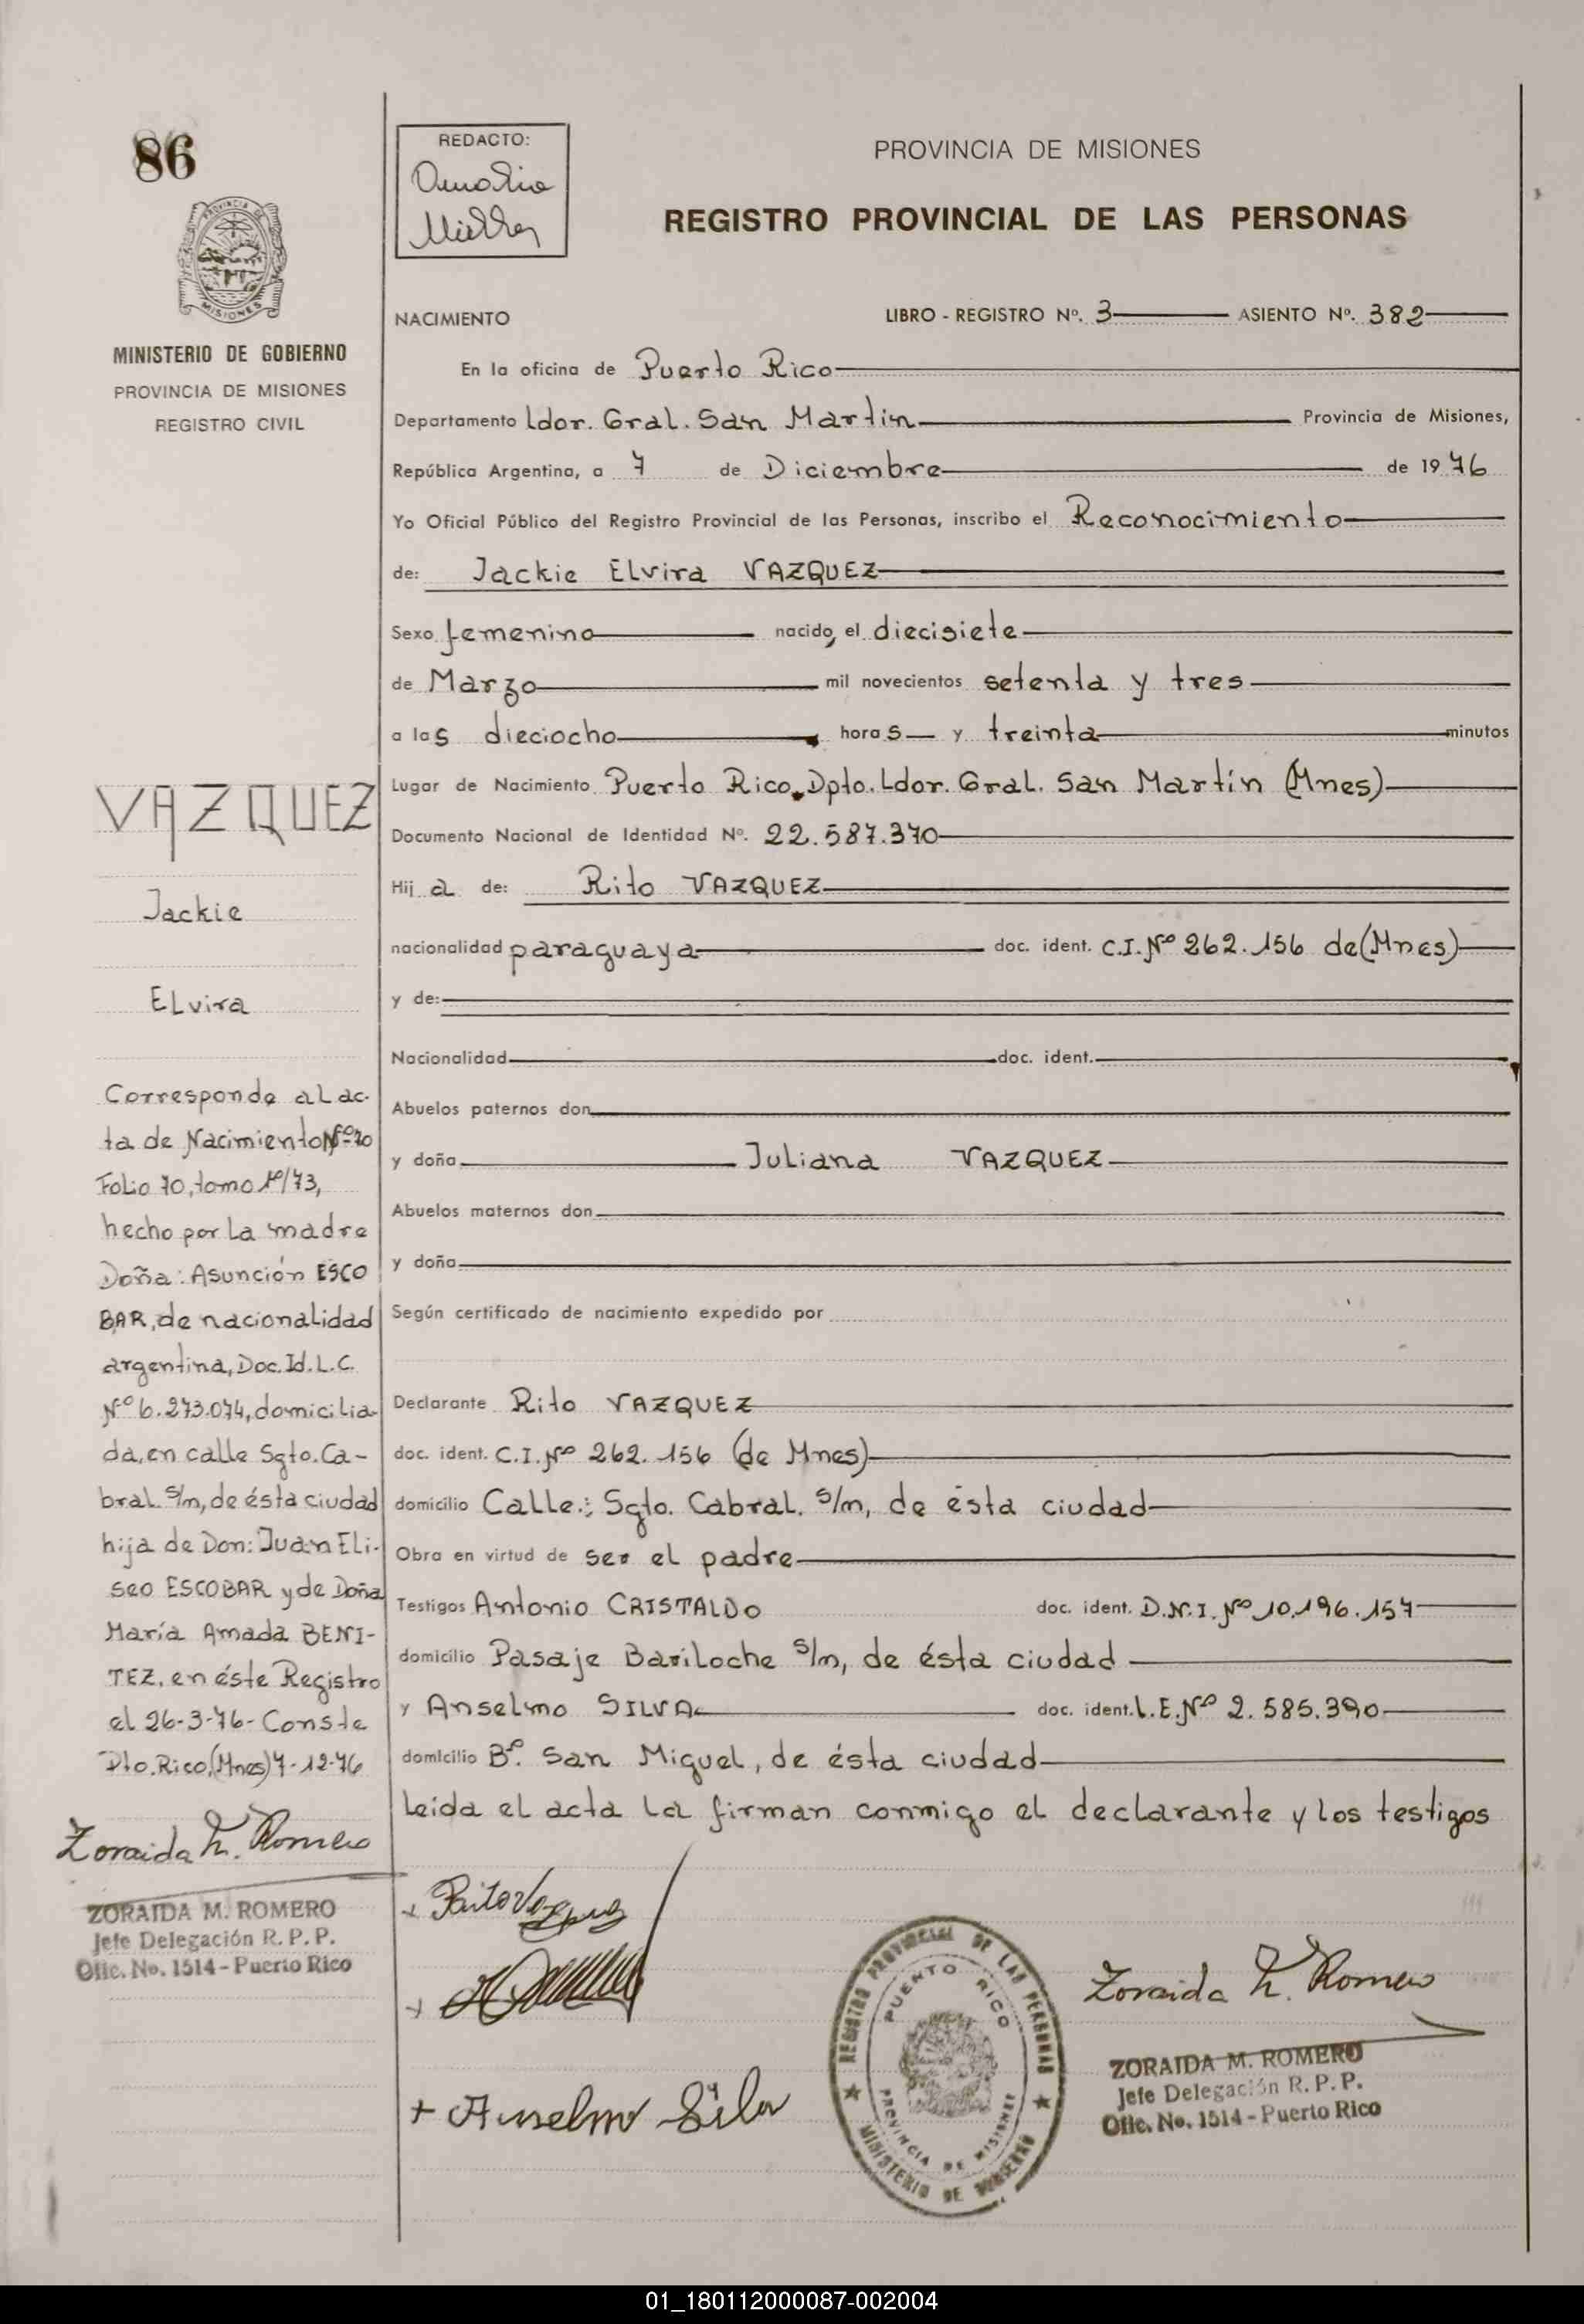 86
MINISTERIO DE GOBIERNO
PROVINCIA DE MISIONES
REGISTRO CIVIL
VAZQUEZ
Jackie
Elvira
Corresponde al ac-
ta de Nacimiento Nº 70
Folio 70, tomo 1º/73,
hecho por la madre
Doña: Asunción ESCO
BAR, de nacionalidad
argentina, Doc. Id. L.C.
Nº 6.273.074, domicilia-
da, en calle Sgto. Ca-
bral. s/n, de ésta ciudad
hija de Don: Juan Eli-
seo ESCOBAR y de Doña
María Amada BENI-
TEZ, en éste Registro
el 26-3-76- Conste
Pto. Rico, (Mnes) 7-12-76
Zoraida M. Romero
ZORAIDA M. ROMERO
Jefe Delegación R. P. P.
Ofic. No. 1514 - Puerto Rico
REDACTO:
PROVINCIA DE MISIONES
REGISTRO PROVINCIAL DE LAS PERSONAS
NACIMIENTO LIBRO - REGISTRO Nº. 3 ASIENTO Nº. 382
En la oficina de Puerto Rico
Departamento Ldor. Gral. San Martín Provincia de Misiones,
República Argentina, a 7 de Diciembre de 1976
Yo Oficial Público del Registro Provincial de las Personas, inscribo el Reconocimiento
de: Jackie Elvira VAZQUEZ
Sexo femenino nacido, el diecisiete
de Marzo mil novecientos setenta y tres
a las dieciocho horas y treinta minutos
Lugar de Nacimiento Puerto Rico. Dpto. Ldor. Gral. San Martín (Mnes)
Documento Nacional de Identidad Nº. 22.587.370
Hija de: Rito VAZQUEZ
nacionalidad paraguaya doc. ident. C.I. Nº 262.156 de (Mnes)
y de:
Nacionalidad doc. ident.
Abuelos paternos don
y doña Juliana VAZQUEZ
Abuelos maternos don
y doña
Según certificado de nacimiento expedido por
Declarante Rito VAZQUEZ
doc. ident. C.I. Nº 262.156 (de Mnes)
domicilio Calle: Sgto. Cabral. s/n, de ésta ciudad
Obra en virtud de ser el padre
Testigos Antonio CRISTALDO doc. ident. D.N.I. Nº 10.196.157
domicilio Pasaje Bariloche s/n, de ésta ciudad
y Anselmo SILVA doc. ident. L.E. Nº 2.585.390
domicilio Bº. San Miguel, de ésta ciudad
Leída el acta la firman conmigo el declarante y los testigos
+ Rito Vazquez
+
+ Anselmo Silva
REGISTRO PROVINCIAL DE LAS PERSONAS
PUERTO RICO
PROVINCIA DE MISIONES
MINISTERIO DE GOBIERNO
Zoraida M. Romero
ZORAIDA M. ROMERO
Jefe Delegación R. P. P.
Ofic. No. 1514 - Puerto Rico
01_180112000087-002004